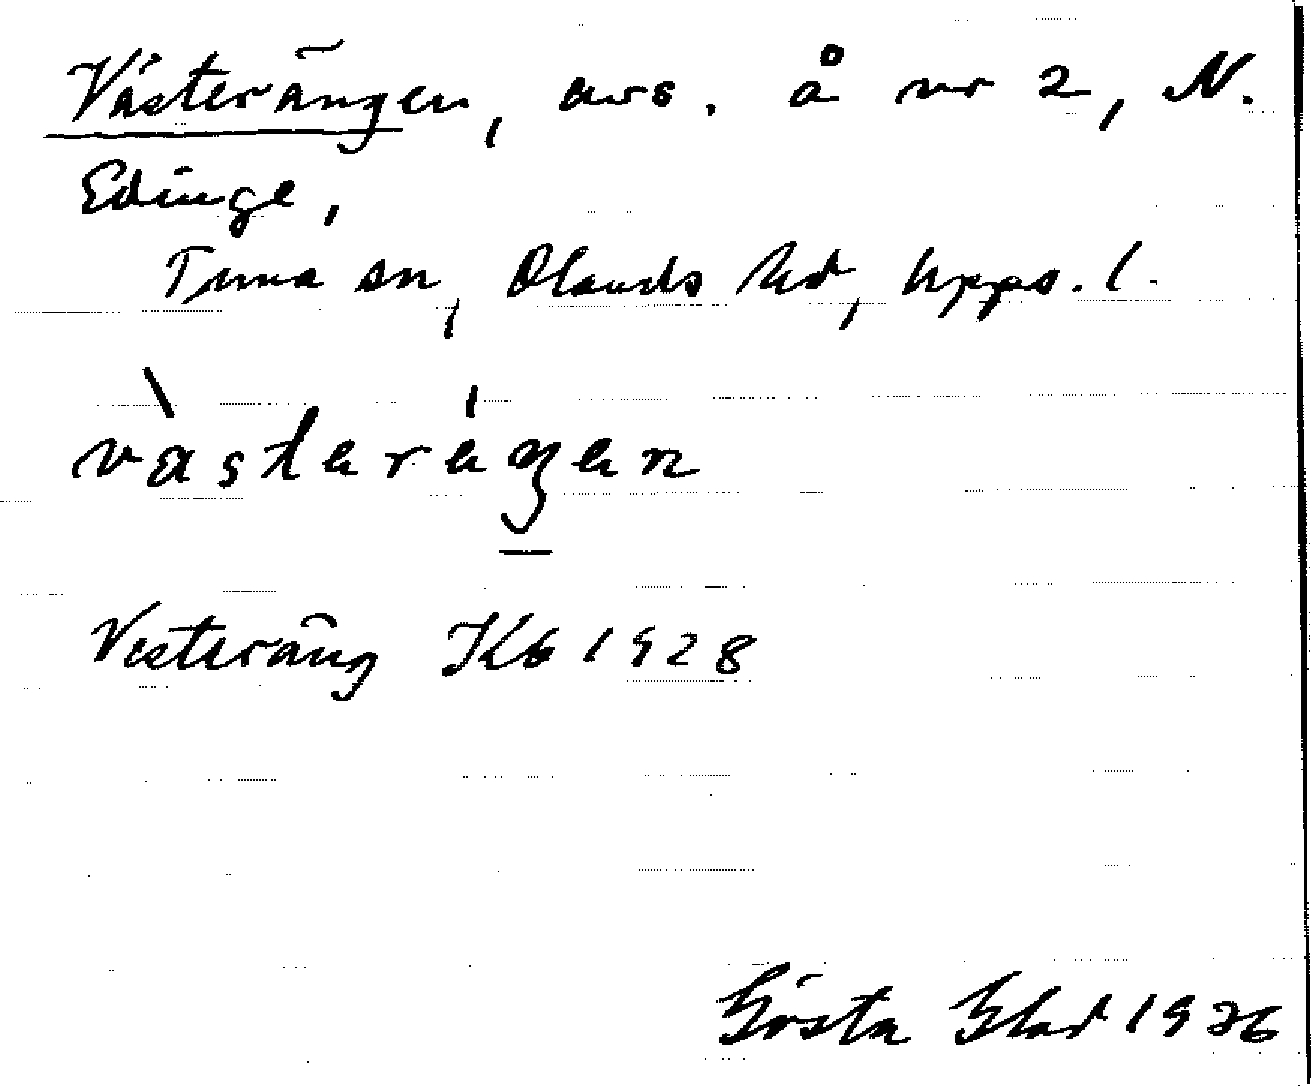 Västerängen, avs. å nr 2, N.
Edinge,
Tuna sn, Olands hd, Upps. l.
vàsterágen
Vesteräng Kb 1928
Gösta Blad 1936